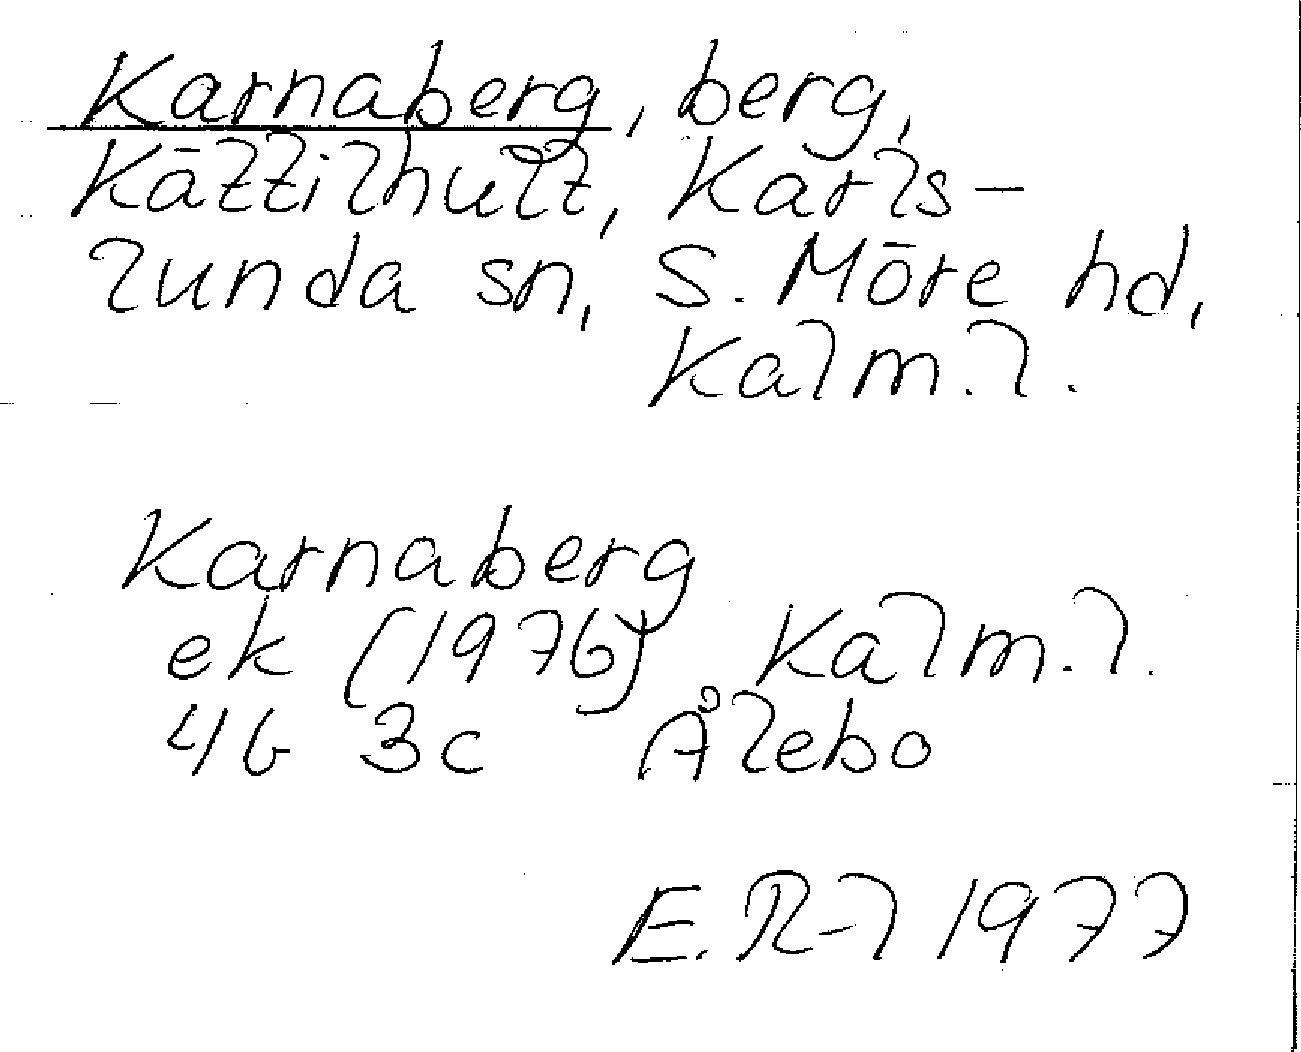 Karnaberg, berg,
Kättilhult, Karls-
lunda sn, S. Möre hd,
Kalm. l.
Karnaberg
ek (1976) Kalm. l.
4G 3c Ålebo
E. R-l 1977